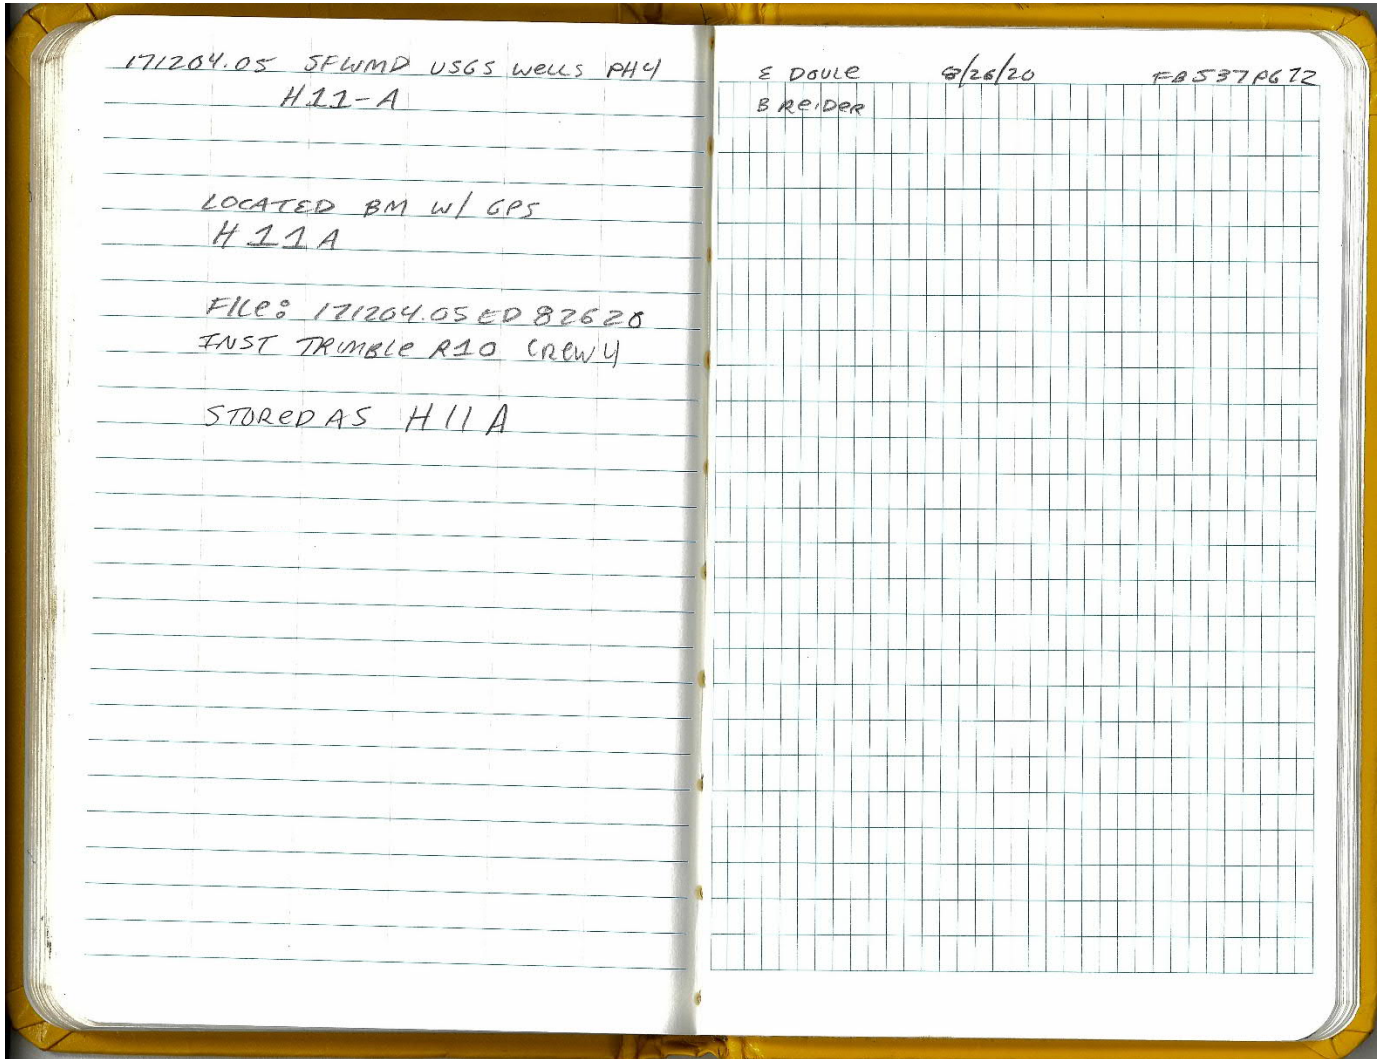 171204.05 SFWMD USGS WELLS PH4
H11-A
LOCATED BM W/ GPS
H11A
FILE: 171204.05ED82620
INST TRIMBLE R10 CREW 4
STORED AS H11A
E DOULE 8/26/20 FB537PG72
B REIDER